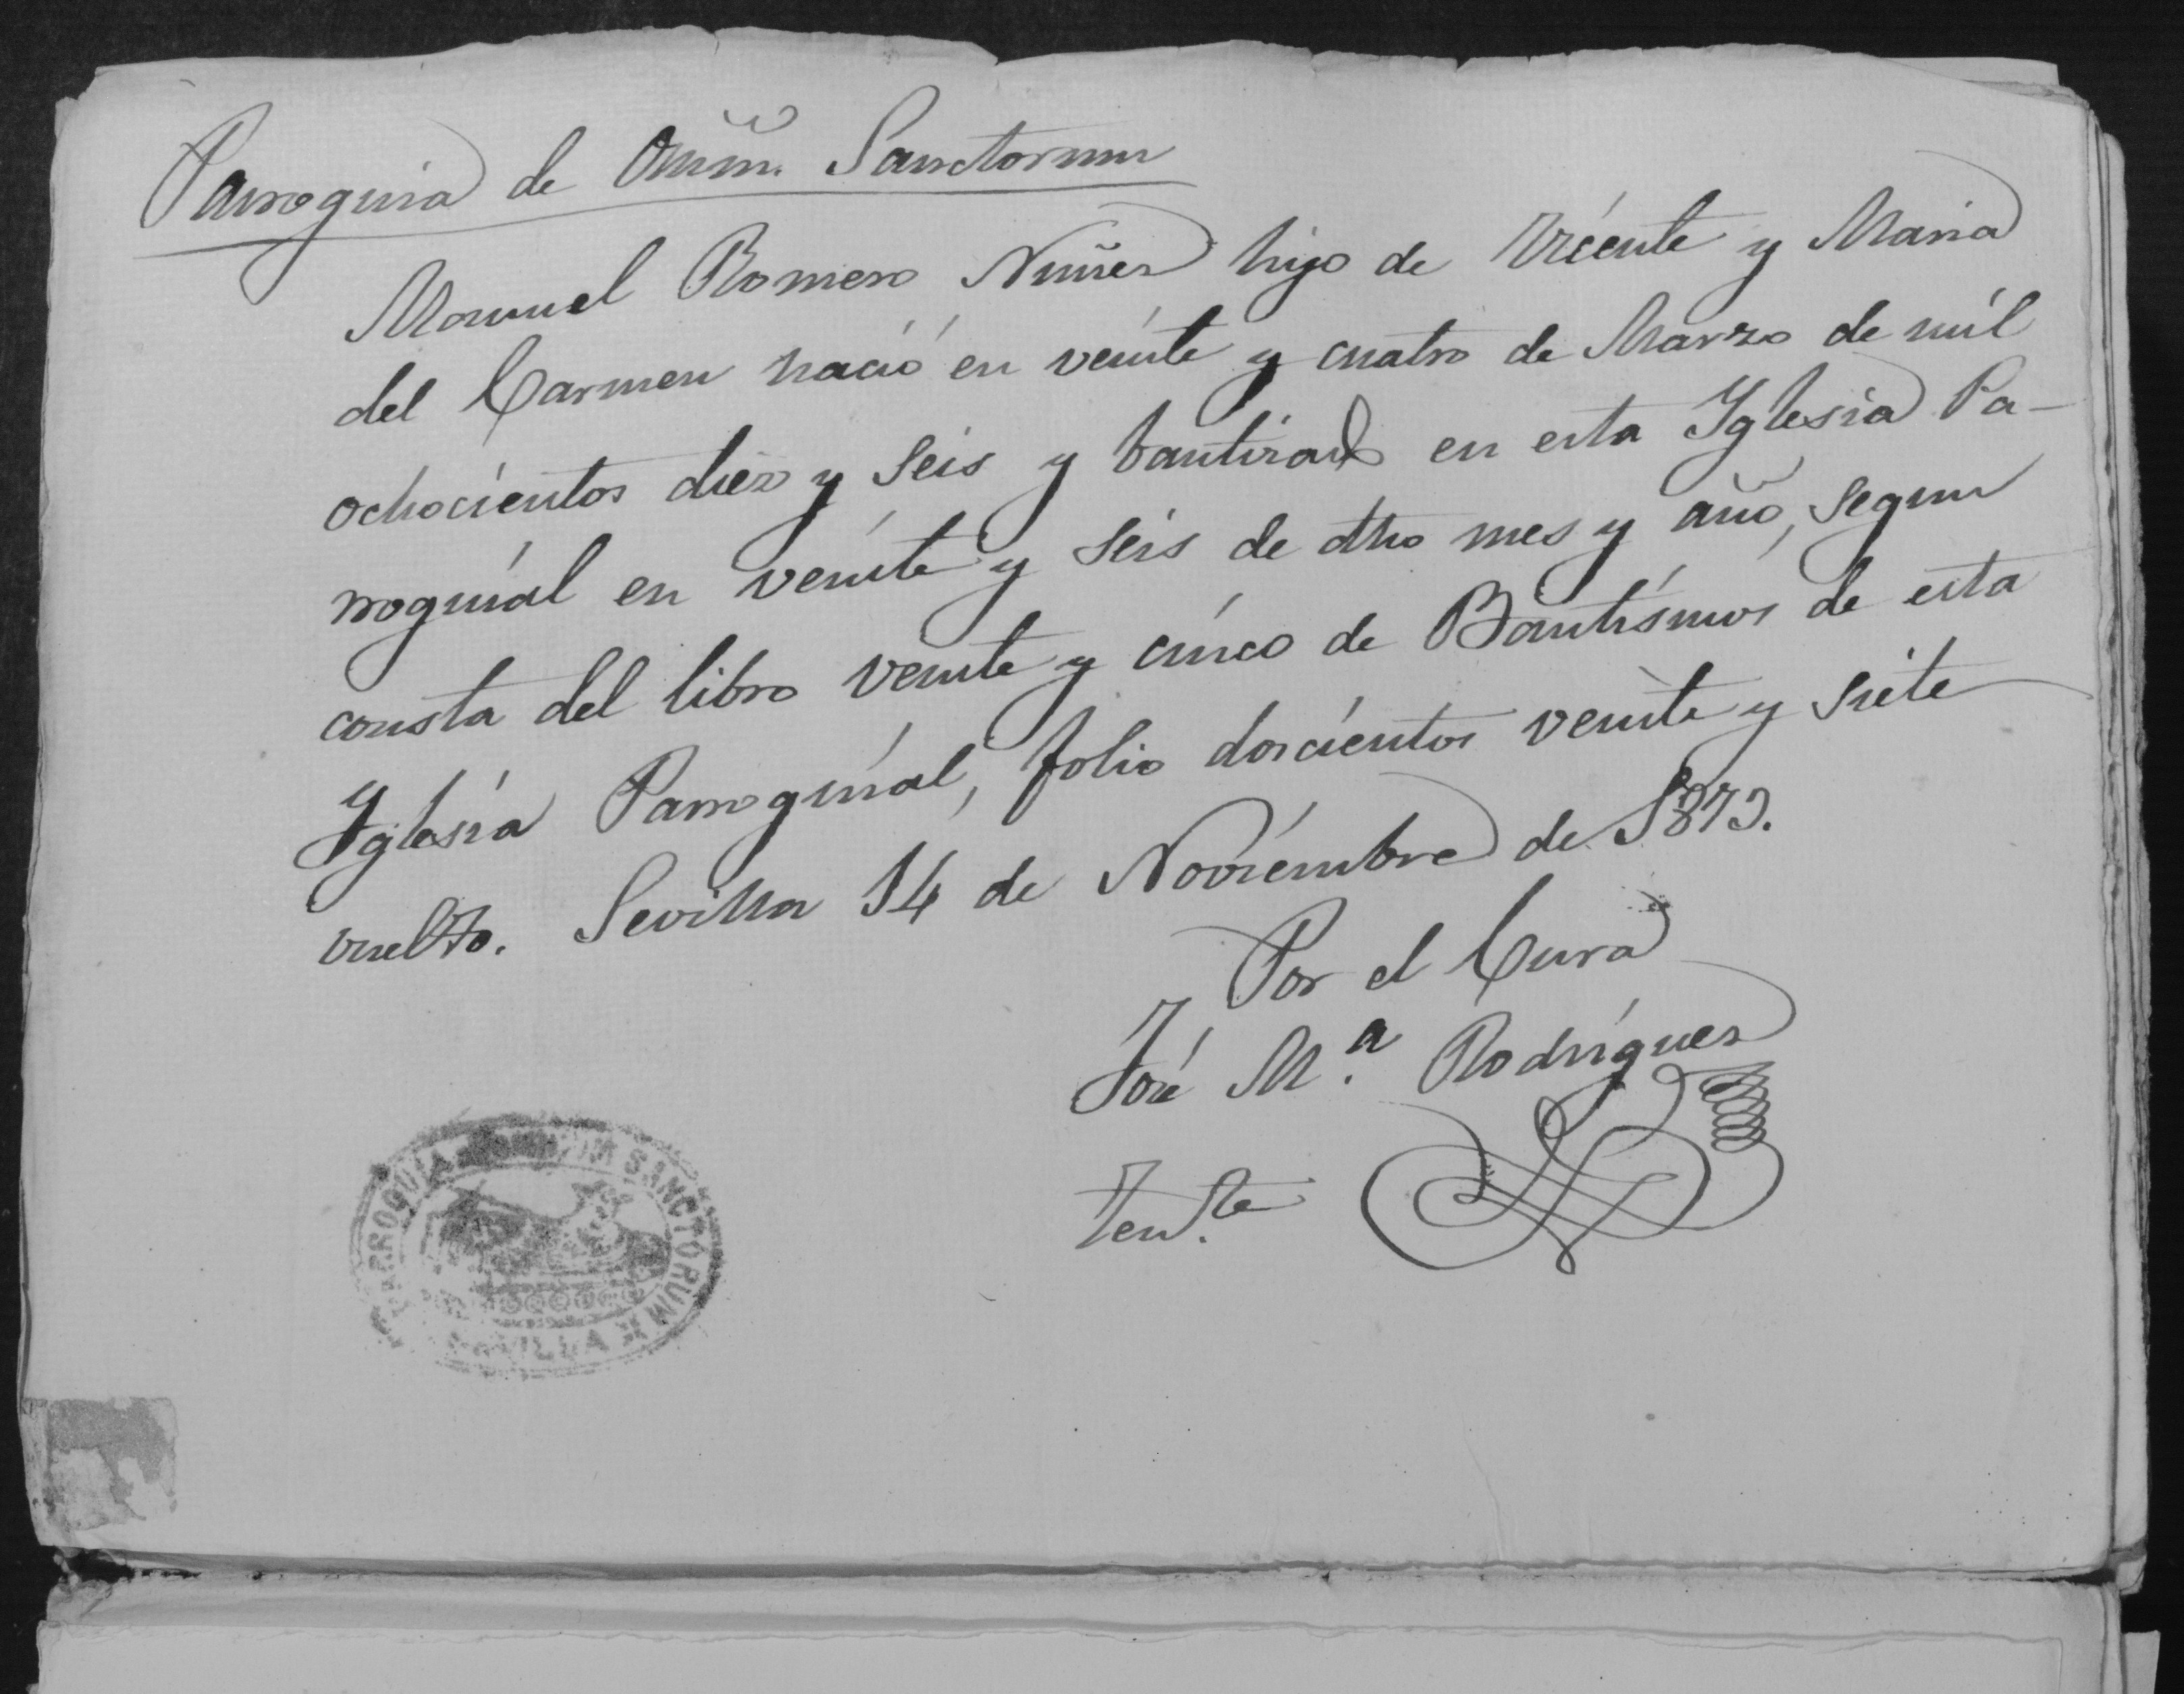 Parroquia de Omm. Sanctorum
Manuel Romero Nuñez hijo de Vicente y Maria
del Carmen nació en veinte y cuatro de Marzo de mil
ochocientos diez y seis y bautizado en esta Iglesia Pa-
rroquial en veinte y seis de dho mes y año, segun
consta del libro veinte y cinco de Bautismos de esta
Iglesia Parroquial, folio doscientos veinte y siete
vuelto. Sevilla 14 de Noviembre de 1873.
Por el Cura
José M.ª Rodriguez
Ten.te
PARROQUIA SANCTORUM
SEVILLA